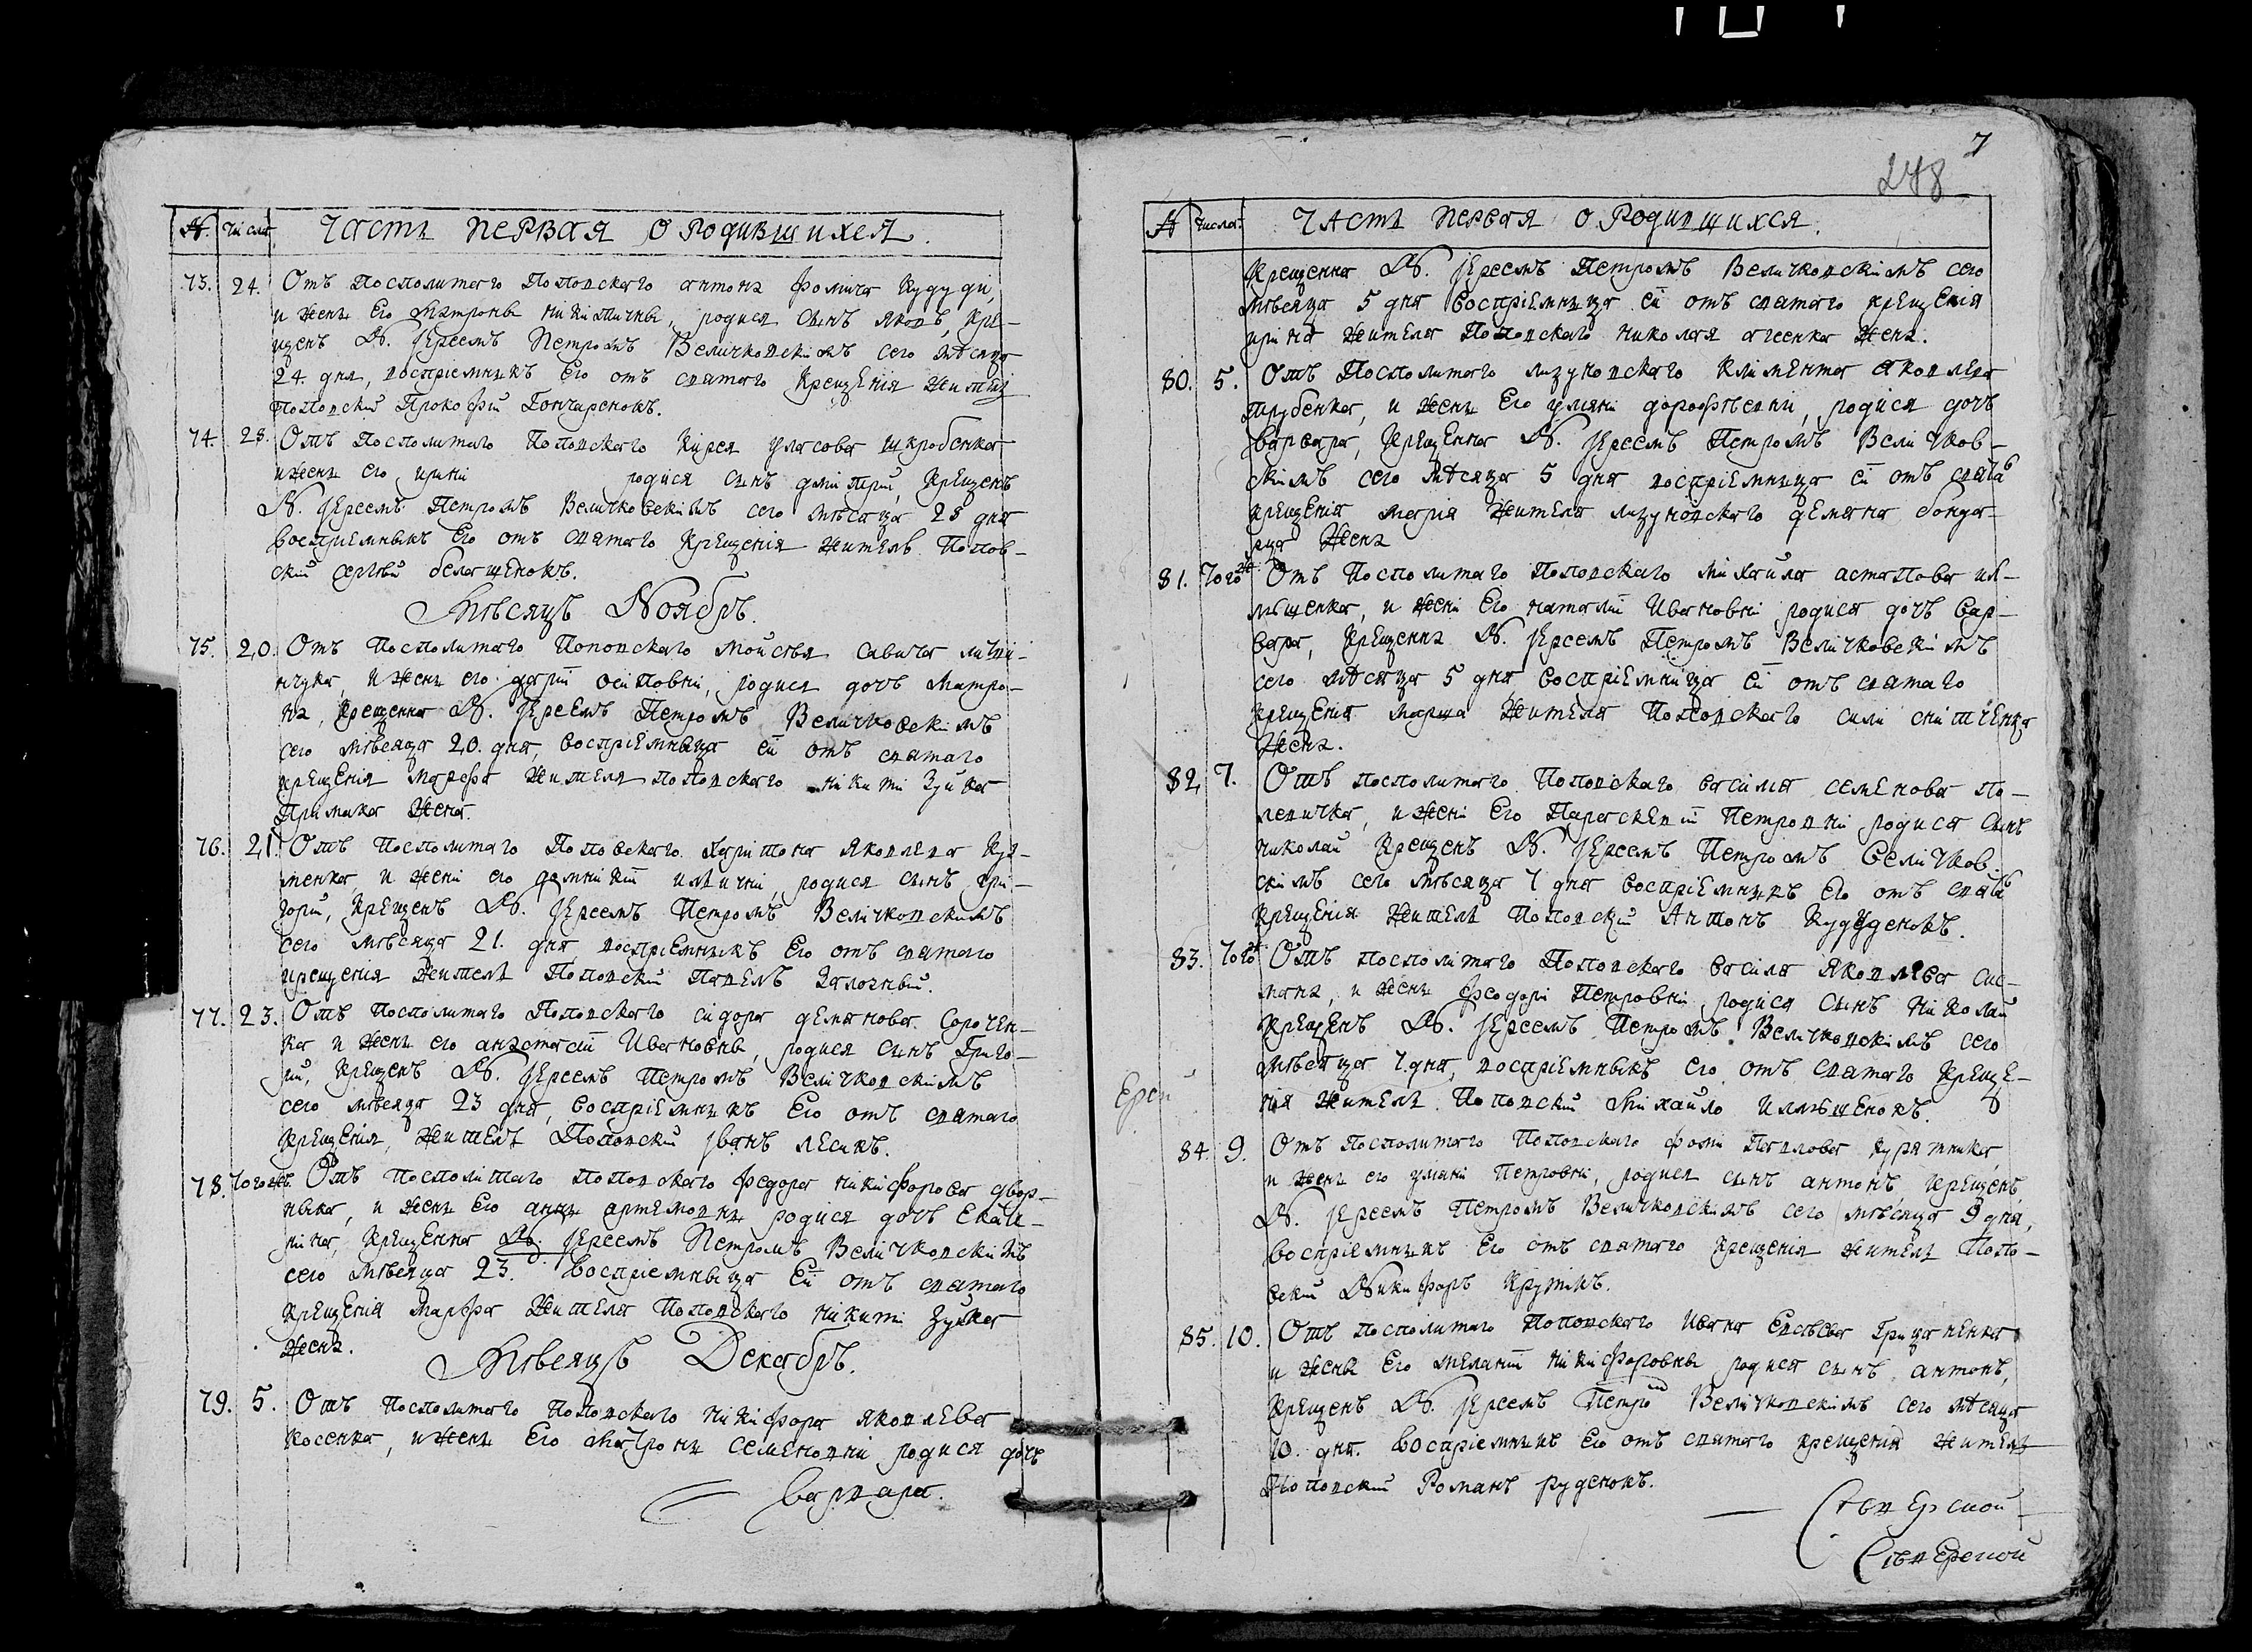 №. числа Часть первая о Родившихся.
73. 24. Отъ посполитаго Поповскаго антона фомича Кудуди,
и жены Его Матроны никитичны, родися сынъ яковъ, кре-
щенъ N. Іереемъ Петромъ Величковскимъ сего мѣсяца
24. дня, воспріемникъ Его отъ святаго крещенія житель
поповский Прокофий Гончаренокъ.
74. 28. Отъ посполитаго Поповскаго Кирея уласова шкробенка
и жены его ирини родися сынъ димитрий, крещенъ
N. Іереемъ Петромъ Величковскимъ сего мѣсяца 28 дня
Воспріемникъ Его отъ святаго крещенія житель Попов-
ский сергѣй
Мѣсяцъ Ноябрь.
75. 20. Отъ посполитаго Поповскаго Моисея савича
нчука, и жены его дарии осиповни, родися дочь матро-
на, крещенна N. Іереемъ Петромъ Величковскимъ
сего мѣсяца 20. дня, воспріемница ей отъ святаго
крещенія марфа жителя поповскаго никити Зуйка
примака жена.
76. 21. Отъ посполитаго Поповскаго харитона яковлева Куз-
менка, и жени его домникии илични, родися сынъ гри-
горий, крещенъ N. Іереемъ Петромъ Величковскимъ
сего мѣсяца 21. дня, воспріемникъ Его отъ святаго
крещенія житель Поповский Павелъ Залочный.
77. 23. Отъ посполитаго Поповскаго сидора демянова Сорочен-
ка и жены его анастасии Ивановны, родися сынъ Григо-
рий, крещенъ N. Іереемъ Петромъ Величковскимъ
сего мѣсяца 23 дня, воспріемникъ Его отъ святаго
крещенія, житель Поповский Іванъ лесикъ.
78. Тогожъ. Отъ посполитаго поповскаго федора никифорова двор-
ныка, и жены Его анны артемовны родися дочь Екате-
рина, крещенна N. Іереемъ Петромъ Величковскимъ
сего мѣсяца 23. Воспріемница Ей отъ святаго
крещенія Марфа жителя Поповскаго никити Зуйка
жена.
Мѣсяцъ Декабрь.
79. 5. Отъ посполитаго поповскаго никифора яковлева
косенка, и жены Его Матроны семеновни родися дочь
варвара.
7
248
№ числа Часть первая о Родившихся.
крещенна N. Іереемъ Петромъ Величковскимъ сего
мѣсяца 5 дня воспріемница ей отъ святаго крещенія
ирина жителя Поповскаго николая агеенка жена.
80. 5. Отъ Посполитаго лизуновскаго климента яковлева
трубенка, и жены Его уляни дорофѣевни, родися дочь
варвара, крещенна N. Іереемъ Петромъ Величков-
скимъ сего мѣсяца 5 дня воспріемница ей отъ святаго
крещенія марія жителя лизуновскаго демяна бонда-
ра жена
81. Тогожъ Отъ посполитаго поповскаго михаила астапова ил-
лѣшенка, и жени Его наталии Ивановни родися дочь вар-
вара, крещенна N. Іереемъ Петромъ Величковскимъ
сего мѣсяца 5 дня воспріемница ей отъ святаго
крещенія марша жителя Поповскаго сили
жена.
82. 7. Отъ посполитаго Поповскаго василия семенова по-
левичка, и жени Его Параскевии Петровни родися сынъ
николай крещенъ N. Іереемъ Петромъ Величков-
скимъ сего мѣсяца 7 дня воспріемникъ Его отъ святаго
крещенія житель поповский Антонъ Кудуденокъ.
83. Тогожъ Отъ посполитаго Поповскаго василя яковлева
и жены феодори Петровни родися сынъ николай
крещенъ N. Іереемъ Петромъ Величковскимъ сего
мѣсяца 7. дня, воспріемникъ его отъ святаго креще-
нія житель Поповский Михайло иллѣшенокъ.
84. 9. Отъ посполитаго Поповскаго фоми павлова курятника
и жены его уляни Петровни, родися сынъ антонъ, крещенъ
N. Іереемъ Петромъ Величковскимъ сего мѣсяца 9 дня,
воспріемникъ Его отъ святаго крещенія житель Попо-
вский Никифоръ Крутикъ.
85. 10. Отъ посполитаго Поповскаго Ивана Грицаненка
и жены Его мелании никифоровны родися сынъ антонъ,
крещенъ N. Іереемъ Петромъ Величковскимъ сего мѣсяца
10. дня. воспріемникъ Его отъ святаго крещения житель
Поповский Романъ руденокъ.